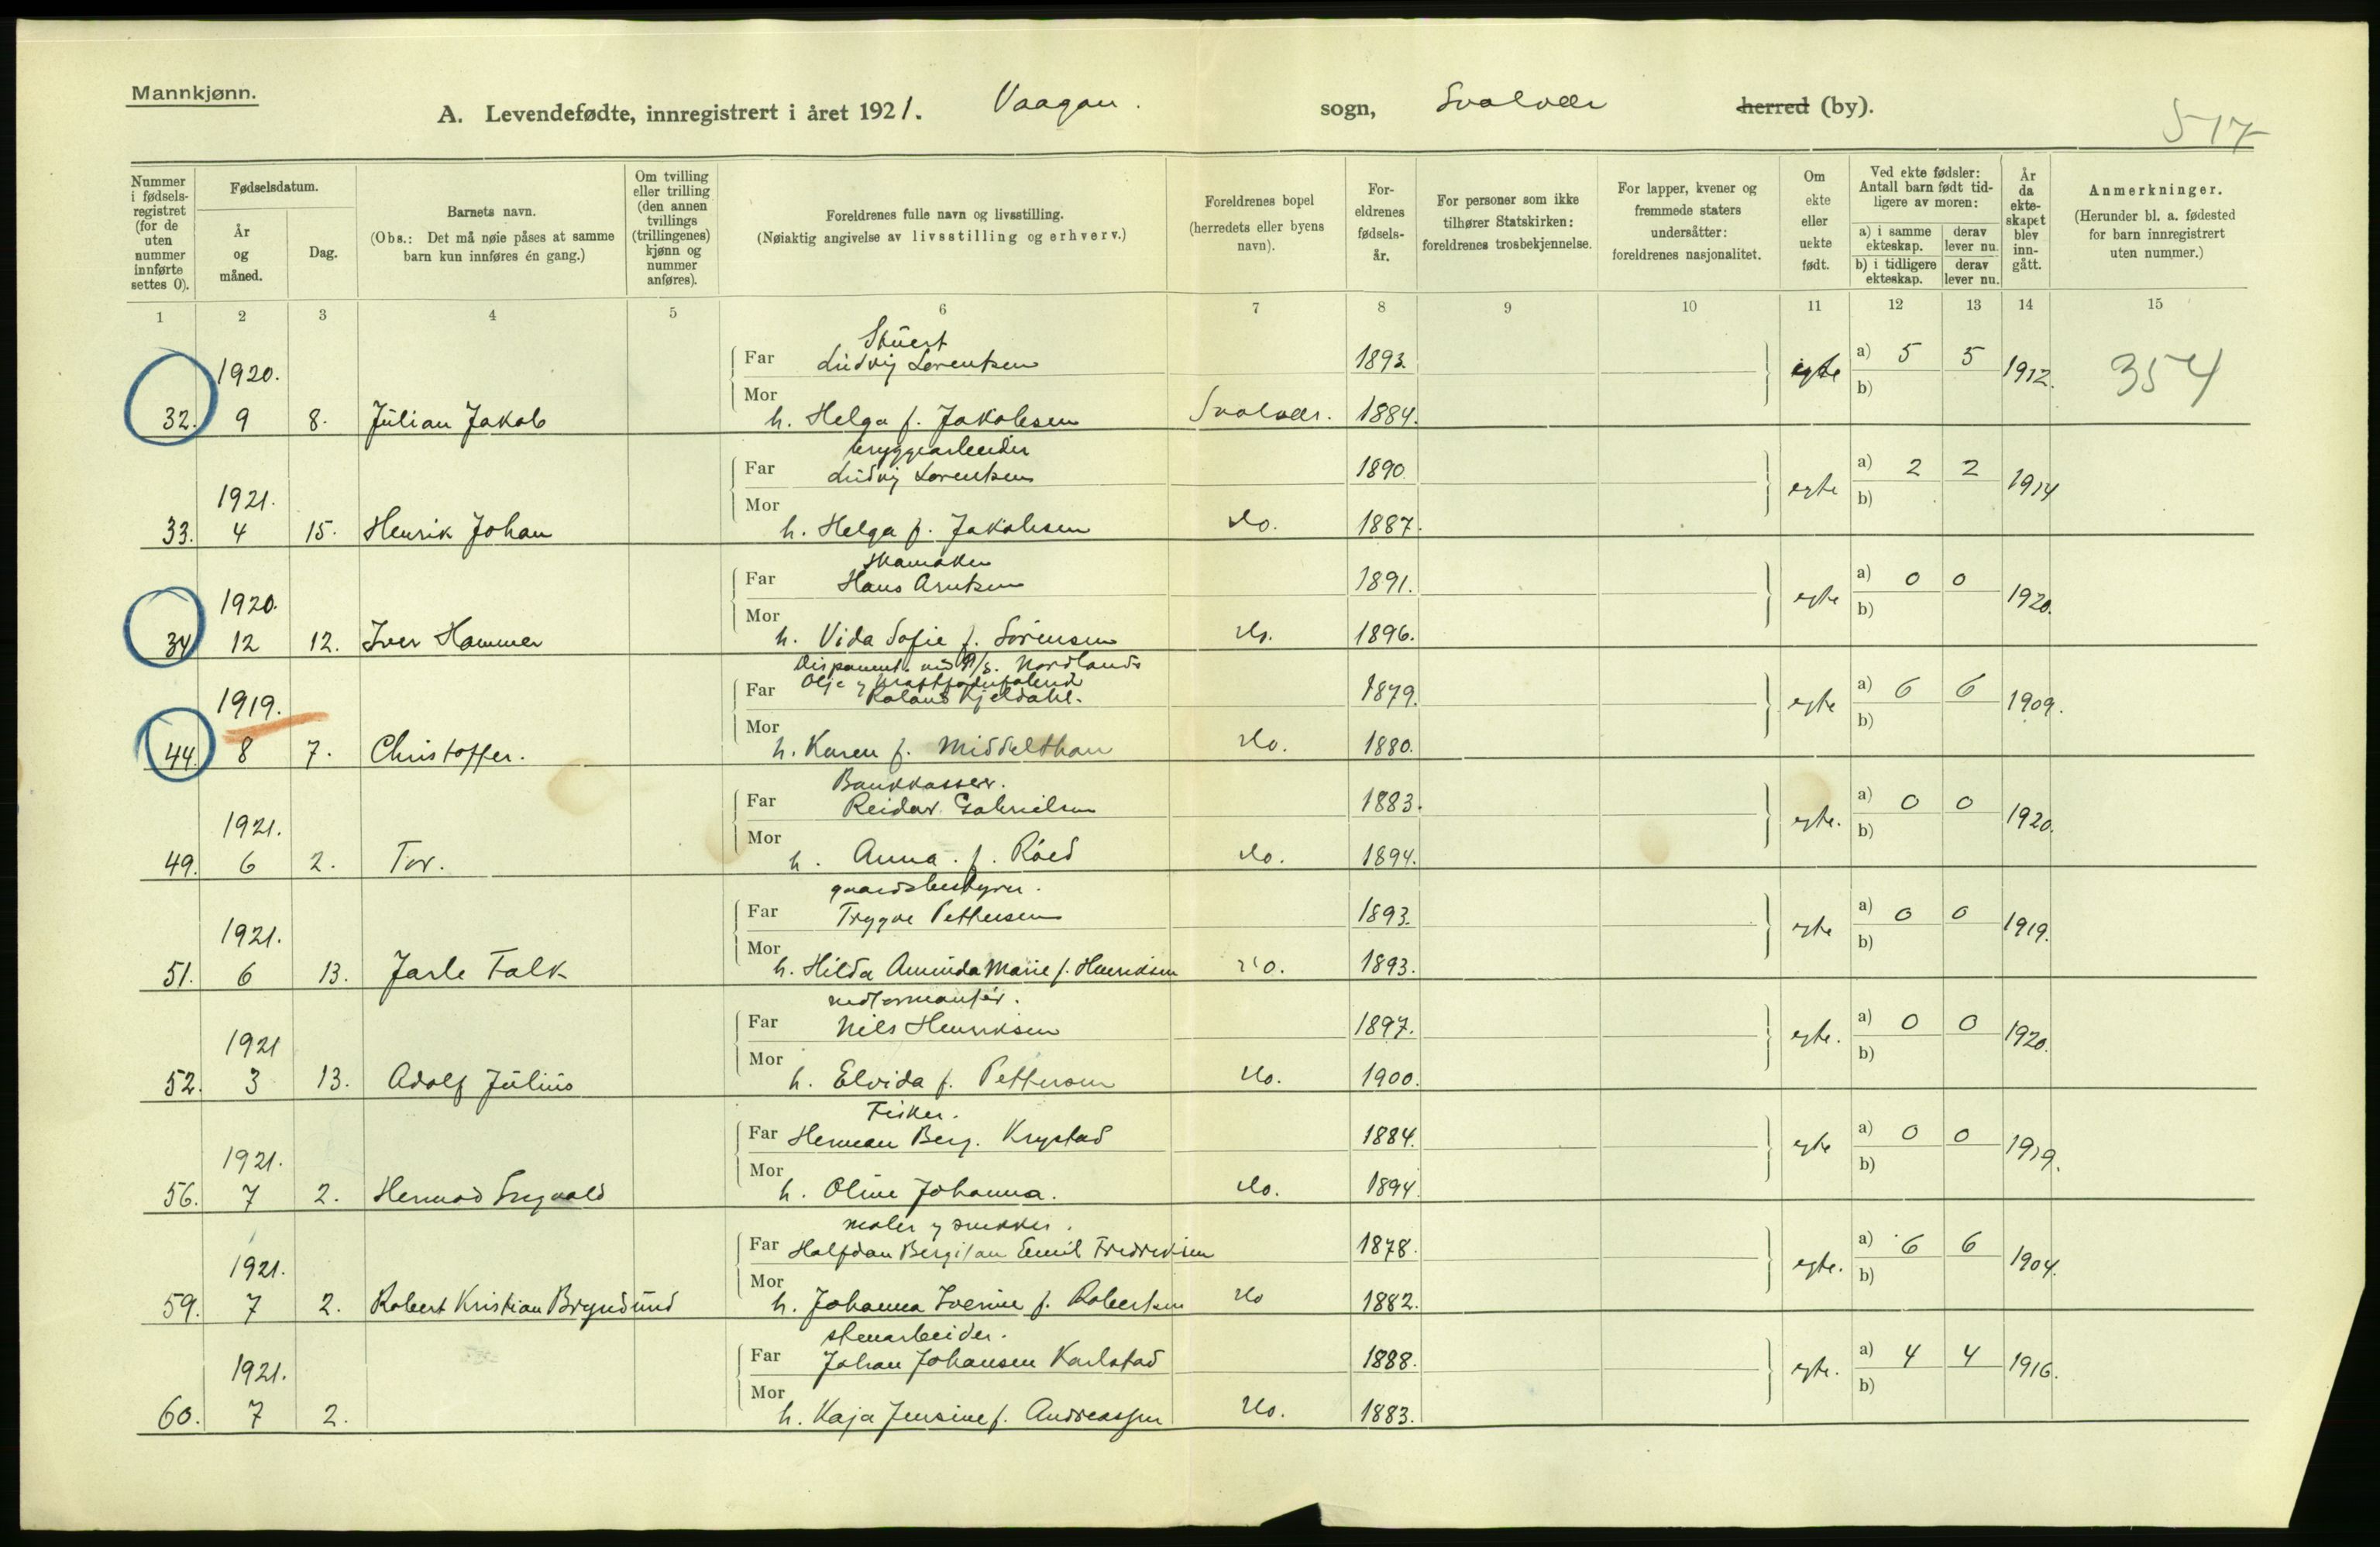 Mannkjønn.
A. Levendefødte, innregistrert i året 1921. Vaagan. sogn, Svolvær herred (by).
517
Nummer i fødselsregistret (for de uten nummer innførte settes 0).
Fødselsdatum.
År og måned.
Dag.
Barnets navn.
(Obs.: Det må nøie påses at samme barn kun innføres én gang.)
Om tvilling eller trilling (den annen tvillings (trillingenes) kjønn og nummer anføres).
Foreldrenes fulle navn og livsstilling.
(Nøiaktig angivelse av livsstilling og erhverv.)
Foreldrenes bopel (herredets eller byens navn).
Foreldrenes fødselsår.
For personer som ikke tilhører Statskirken: foreldrenes trosbekjennelse.
For lapper, kvener og fremmede staters undersåtter: foreldrenes nasjonalitet.
Om ekte eller uekte født.
Ved ekte fødsler: Antall barn født tidligere av moren:
a) i samme ekteskap. derav lever nu.
b) i tidligere ekteskap. derav lever nu.
År da ekteskapet blev inngått.
Anmerkninger.
(Herunder bl. a. fødested for barn innregistrert uten nummer.)
1 2 3 4 5 6 7 8 9 10 11 12 13 14 15
Stuert
1920. Far Ludvig Lorentsen 1893. egte a) 5 5 1912. 354
b)
32. 9 8. Julian Jakob Mor h. Helga f. Jakobsen Svolvær. 1884.
bryggearbeider
Far Ludvig Lorentsen 1890. egte a) 2 2 1914
1921. b)
33. 4 15. Henrik Johan Mor h. Helga f. Jakobsen do. 1887.
skomaker
1920. Far Hans Arntsen 1891. egte a) 0 0 1920.
b)
34 12 12. Iver Hammer Mor h. Vida Sofie f. Sørensen do. 1896.
Disponent ved A/s. Nordlands
Olje
1919. Far Roland Kjeldahl. 1879. egte a) 6 6 1909.
b)
44. 8 7. Christoffer. Mor h. Karen f. Middelthon do. 1880.
Bankkasser.
Far Reidar Gabrielsen 1883. egte. a) 0 0 1920.
1921. b)
49. 6 2. Tor. Mor h. Anna. f. Röed do. 1894.
gaardsbestyrer.
Far Trygve Pettersen 1893. egte a) 0 0 1919.
1921. b)
51. 6 13. Jarle Falk Mor h. Hilda Aminda Marie f. Henriksen do. 1893.
Far Nils Henriksen 1897. egte. a) 0 0 1920.
1921 b)
52. 3 13. Adolf Julius Mor h. Elvida f. Pettersen do. 1900.
Fisker.
Far Herman Berg. Krystad 1884. egte a) 0 0 1919.
1921. b)
56. 7 2. Mor h. Oline Johanna. do. 1894.
maler og snekker.
Far Halfdan Emil Fredriksen 1878. egte. a) 6 6 1904.
1921. b)
59. 7 2. Robert Kristian Mor h. Johanna Iverine f. Robertsen do 1882.
stenarbeider.
Far Johan Johansen Karlstad 1888. egte. a) 4 4 1916.
1921. b)
60. 7 2. Mor h. Kaja Jensine f. Andreassen do. 1883.